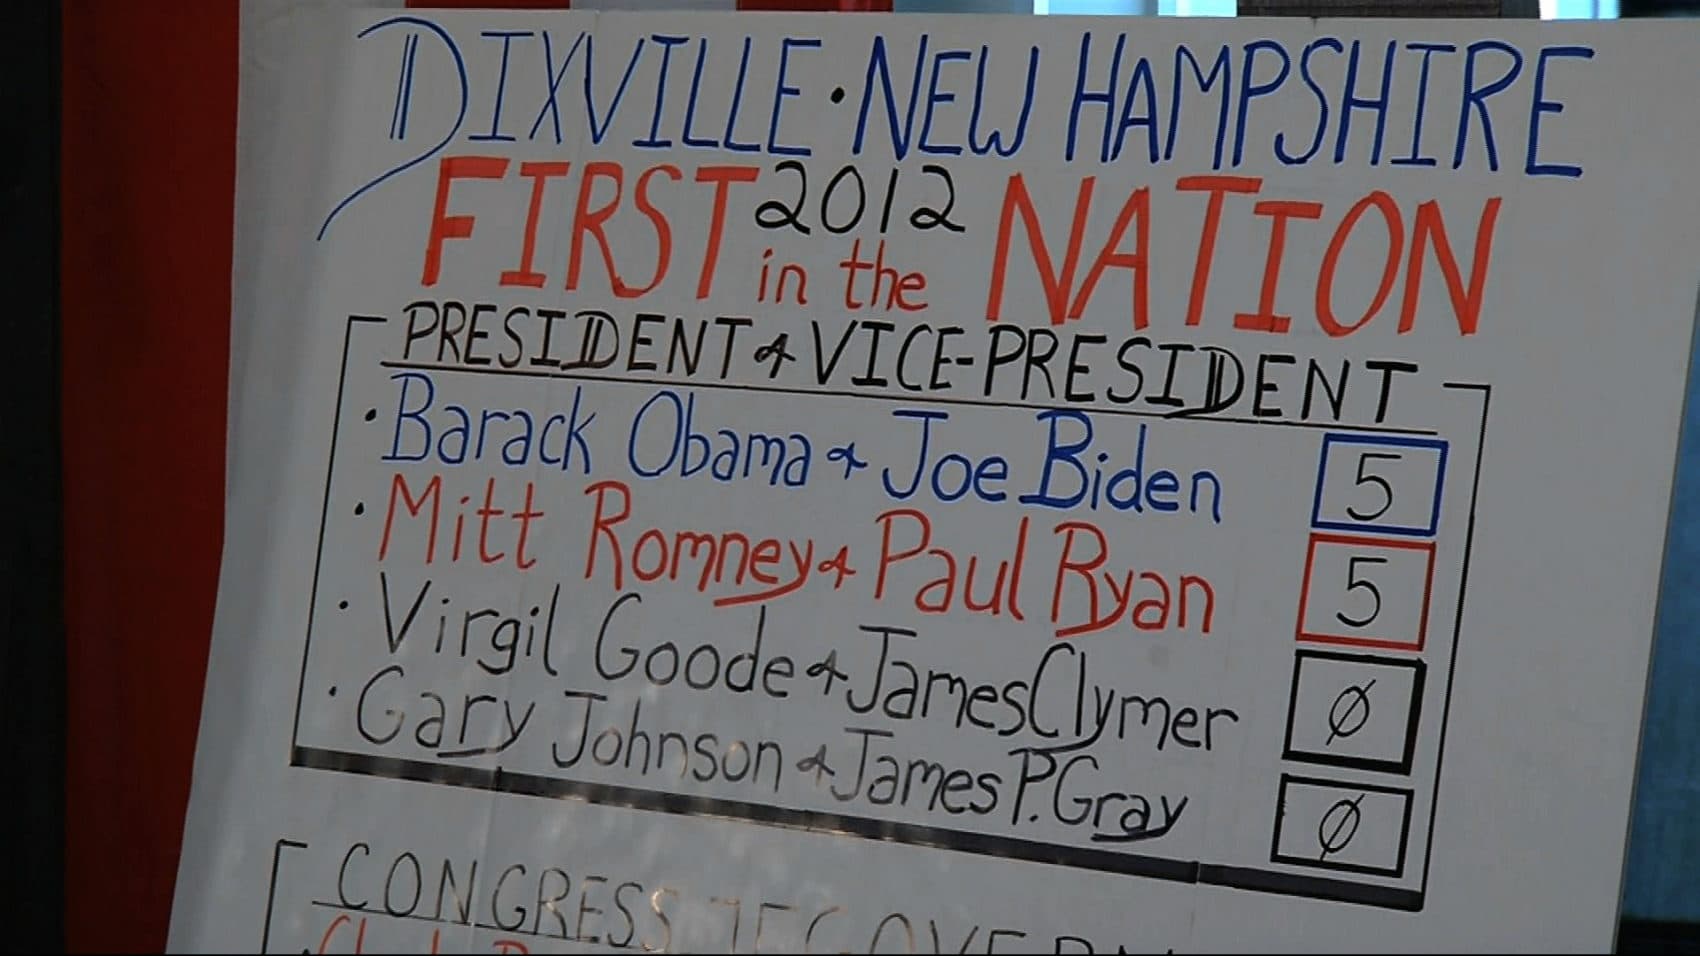 DIXVILLE · NEW HAMPSHIRE
FIRST 2012 in the NATION
PRESIDENT & VICE-PRESIDENT
· Barack Obama & Joe Biden 5
· Mitt Romney & Paul Ryan 5
· Virgil Goode & James Clymer Ø
· Gary Johnson & James P. Gray Ø
CONGRESS